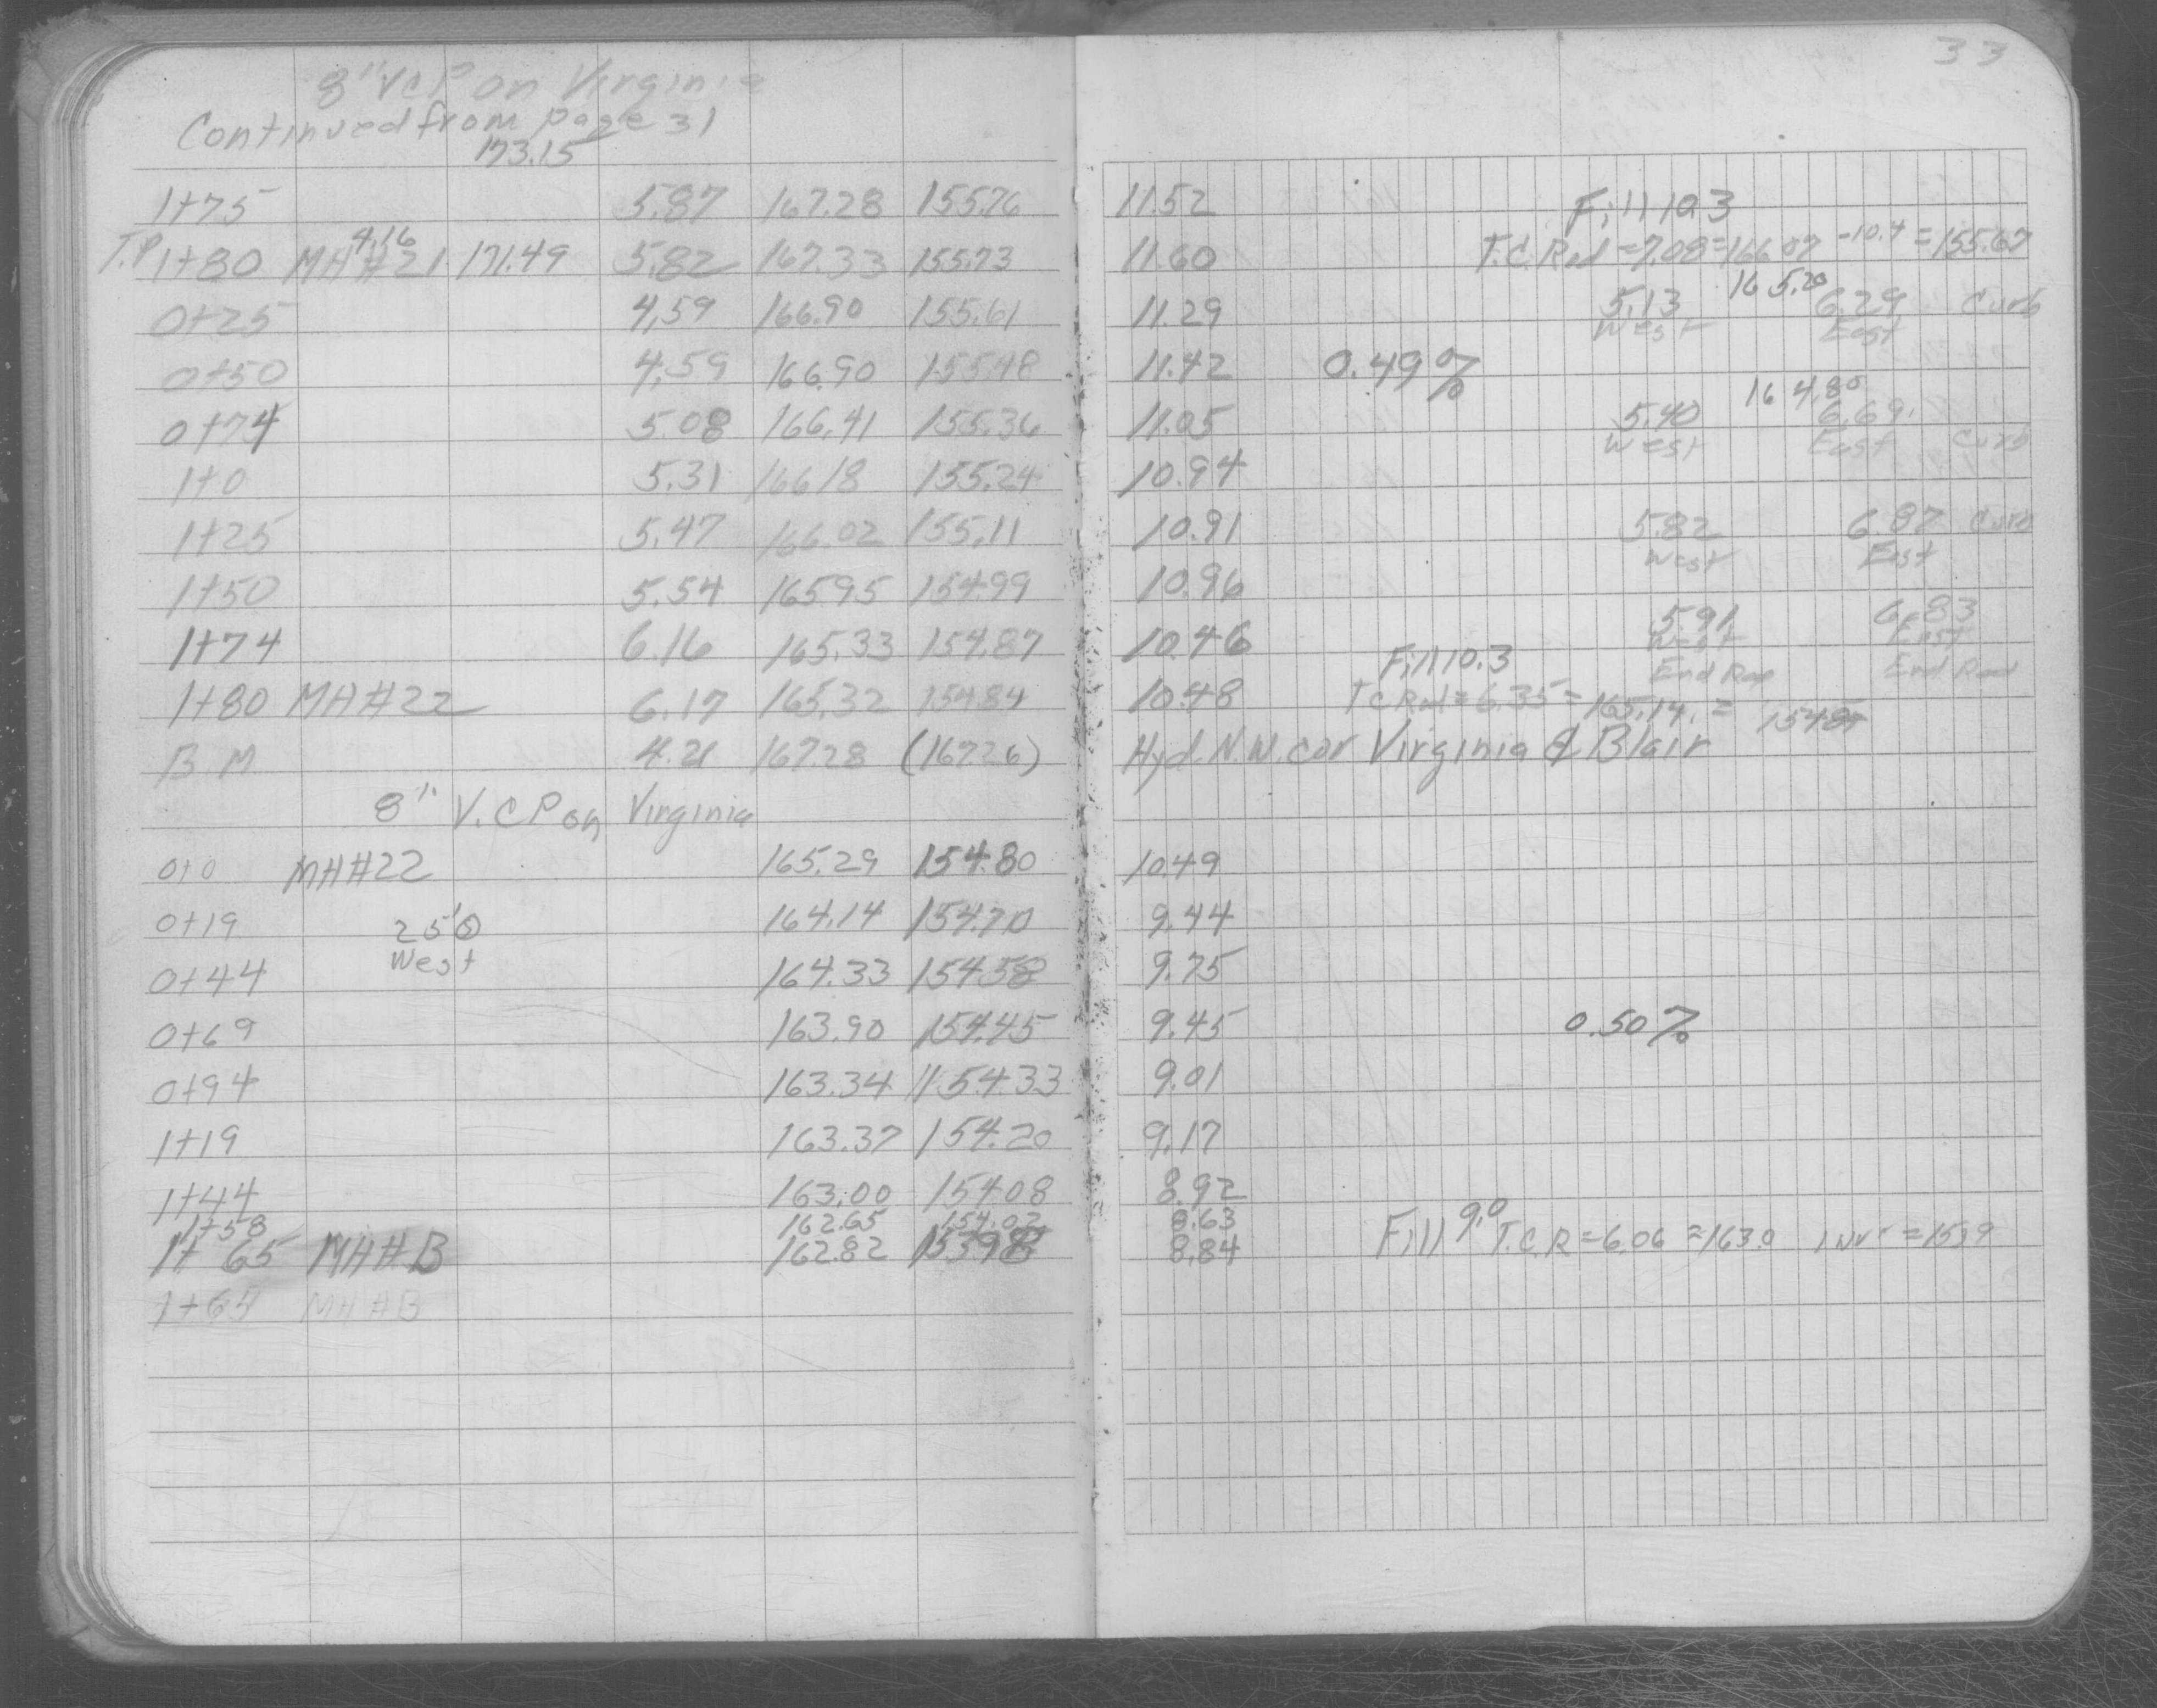 33
8" VCP on Virginia
Continued from page 31
173.15
1+75 5.87 167.28 155.76 11.52 Fill 10.3
T.P. 1+80 MH#21 4.16 171.49 5.82 167.33 155.73 11.60 T.C. Rod = 7.08 = 166.07 -10.4 = 155.67
165.20
0+25 4.59 166.90 155.61 11.29 5.13 6.29 Curb
West East
0+50 4.59 166.90 155.48 11.42 0.49%
164.80
0+74 5.08 166.41 155.36 11.05 5.40 6.69
West East Curb
1+0 5.31 166.18 155.24 10.94
1+25 5.47 166.02 155.11 10.91 5.82 6.87 Curb
West East
1+50 5.54 165.95 154.99 10.96
5.91 6.83
West East
1+74 6.16 165.33 154.87 10.46 Fill 10.3 End Rad End Rad
1+80 MH#22 6.17 165.32 154.84 10.48 T C Rod = 6.35 = 165.14 =
B M 4.21 167.28 (167.26) Hyd. N.W. cor Virginia & Blair
8" V.C.P on Virginia
0+0 MH#22 165.29 154.80 10.49
0+19 25'O 164.14 154.70 9.44
West
0+44 164.33 154.58 9.75
0+69 163.90 154.45 9.45 0.50%
0+94 163.34 154.33 9.01
1+19 163.37 154.20 9.17
1+44 163.00 154.08 8.92
1+58 162.65 154.02 8.63
1+65 MH#B 162.82 153.98 8.84 Fill 9.0 T.C.R = 6.06 = 163.0 Inv =
MH#B